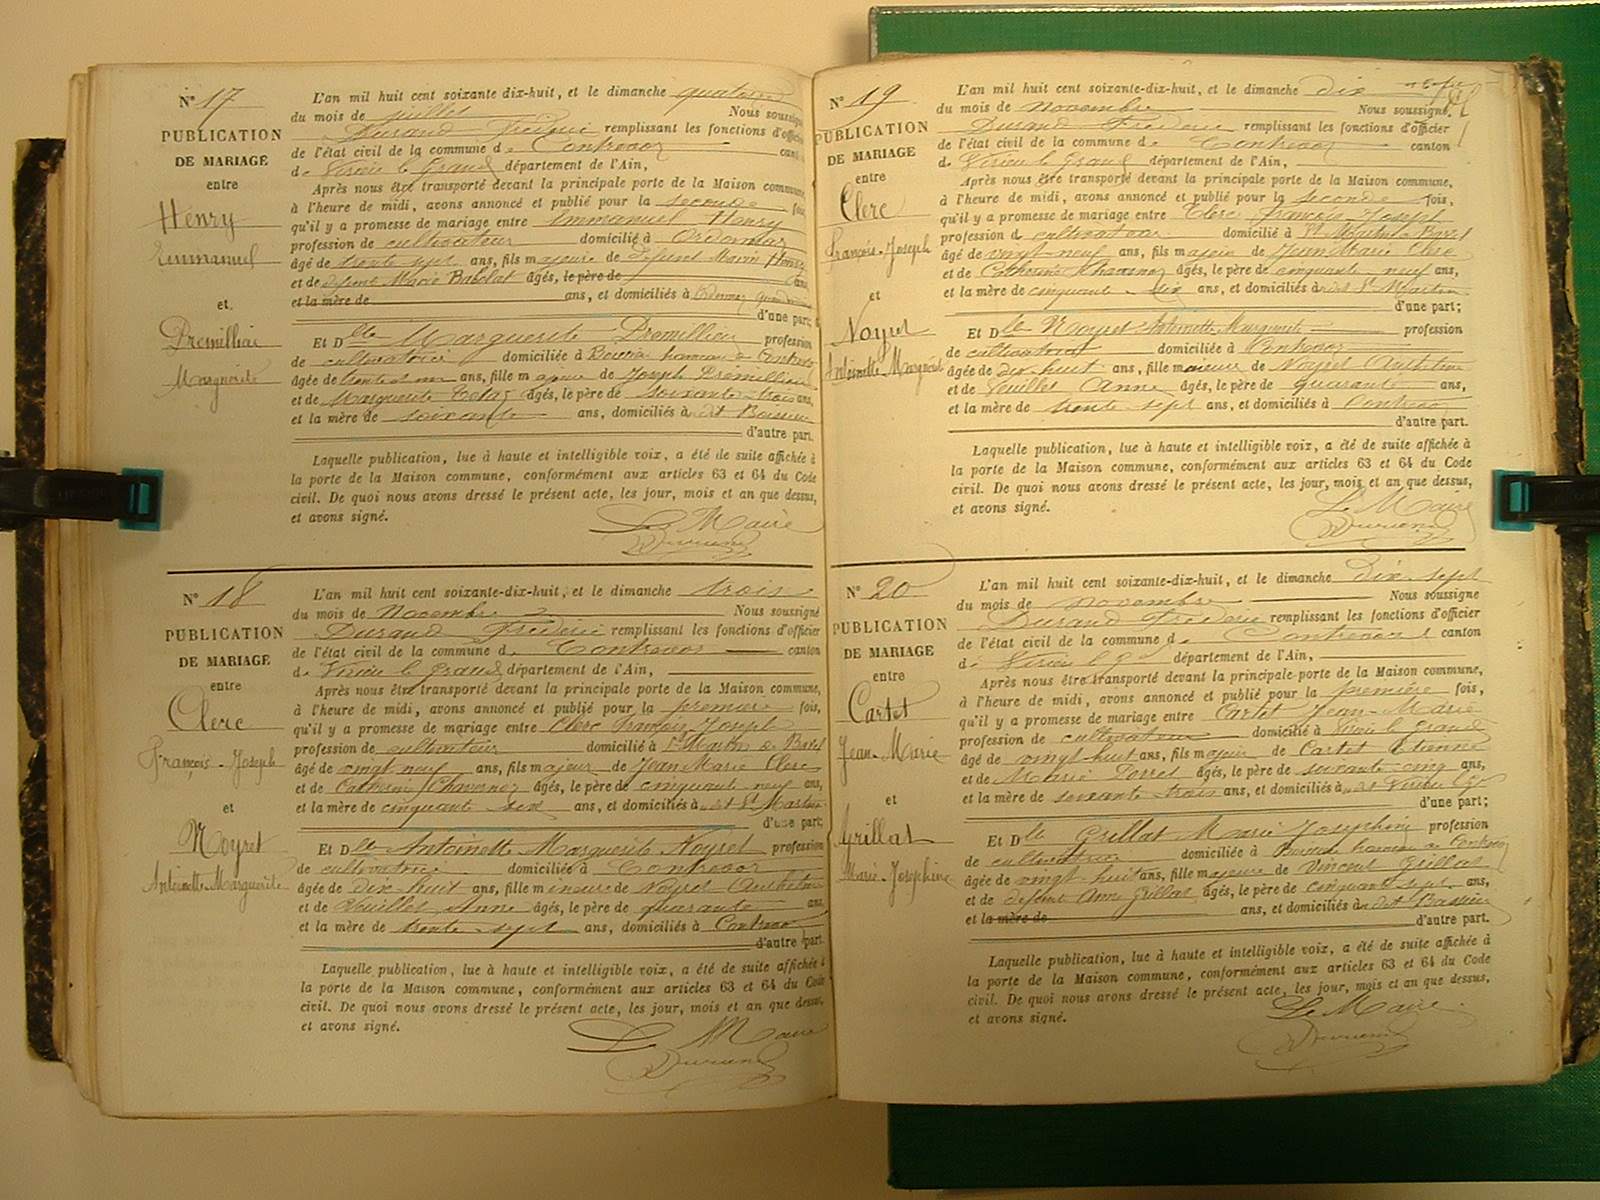 N° 17
PUBLICATION
DE MARIAGE
entre
Henry
Emmanuel
et
Premillieu
Marguerite
L'an mil huit cent soixante dix-huit, et le dimanche quatorze
du mois de juillet Nous soussigné
Durand Frédéric remplissant les fonctions d'officier
de l'état civil de la commune de Contrevoz canton
de Virieu le Grand département de l'Ain,
Après nous être transporté devant la principale porte de la Maison commune,
à l'heure de midi, avons annoncé et publié pour la seconde fois,
qu'il y a promesse de mariage entre Emmanuel Henry
profession de cultivateur domicilié à Ordonnaz
âgé de trente sept ans, fils majeur de défunt Marin Henry
et de défunte Marie Babolat âgés, le père de ans,
et la mère de ans, et domiciliés à Ordonnaz
d'une part;
Et Dlle Marguerite Premillieu profession
de cultivatrice domiciliée à hameau de Contrevoz
âgée de trente et un ans, fille majeure de Joseph Premillieu
et de Marguerite âgés, le père de soixante trois ans,
et la mère de soixante ans, domiciliés à dit
d'autre part.
Laquelle publication, lue à haute et intelligible voix, a été de suite affichée à
la porte de la Maison commune, conformément aux articles 63 et 64 du Code
civil. De quoi nous avons dressé le présent acte, les jour, mois et an que dessus,
et avons signé.
Le Maire
Durand
N° 18
PUBLICATION
DE MARIAGE
entre
Clerc
François-Joseph
et
Noyret
Antoinette-Marguerite
L'an mil huit cent soixante-dix-huit, et le dimanche trois
du mois de Novembre Nous soussigné
Durand Frédéric remplissant les fonctions d'officier
de l'état civil de la commune de Contrevoz canton
de Virieu le Grand département de l'Ain,
Après nous être transporté devant la principale porte de la Maison commune,
à l'heure de midi, avons annoncé et publié pour la première fois,
qu'il y a promesse de mariage entre Clerc François Joseph
profession de cultivateur domicilié à St Martin de Bavel
âgé de vingt neuf ans, fils majeur de Jean Marie Clerc
et de Catherine Chavanoz âgés, le père de cinquante neuf ans,
et la mère de cinquante six ans, et domiciliés à dit St Martin
d'une part;
Et Dlle Antoinette Marguerite Noyret profession
de cultivatrice domiciliée à Contrevoz
âgée de dix-huit ans, fille mineure de Noyret Anthelme
et de Veuillet Anne âgés, le père de quarante ans,
et la mère de trente sept ans, domiciliés à Contrevoz
d'autre part.
Laquelle publication, lue à haute et intelligible voix, a été de suite affichée à
la porte de la Maison commune, conformément aux articles 63 et 64 du Code
civil. De quoi nous avons dressé le présent acte, les jour, mois et an que dessus,
et avons signé.
Le Maire
Durand
N° 19
PUBLICATION
DE MARIAGE
entre
Clerc
François-Joseph
et
Noyret
Antoinette Marguerite
L'an mil huit cent soixante-dix-huit, et le dimanche dix
du mois de Novembre Nous soussigné,
Durand Frédéric remplissant les fonctions d'officier
de l'état civil de la commune de Contrevoz canton
de Virieu le Grand département de l'Ain,
Après nous être transporté devant la principale porte de la Maison commune,
à l'heure de midi, avons annoncé et publié pour la seconde fois,
qu'il y a promesse de mariage entre Clerc François-Joseph
profession de cultivateur domicilié à St Martin de Bavel
âgé de vingt-neuf ans, fils majeur de Jean Marie Clerc
et de Catherine Chavanoz âgés, le père de cinquante-neuf ans,
et la mère de cinquante six ans, et domiciliés à dit St Martin
d'une part;
Et Dlle Noyret Antoinette Marguerite profession
de cultivatrice domiciliée à Contrevoz
âgée de dix-huit ans, fille mineure de Noyret Anthelme
et de Veuillet Anne âgés, le père de quarante ans,
et la mère de trente sept ans, et domiciliés à Contrevoz
d'autre part.
Laquelle publication, lue à haute et intelligible voix, a été de suite affichée à
la porte de la Maison commune, conformément aux articles 63 et 64 du Code
civil. De quoi nous avons dressé le présent acte, les jour, mois et an que dessus,
et avons signé.
Le Maire
Durand
N° 20
PUBLICATION
DE MARIAGE
entre
Cartet
Jean-Marie
et
Grillat
Marie-Josephine
L'an mil huit cent soixante-dix-huit, et le dimanche dix-sept
du mois de novembre Nous soussigné
Durand Frédéric remplissant les fonctions d'officier
de l'état civil de la commune de Contrevoz canton
de Virieu le Gd département de l'Ain,
Après nous être transporté devant la principale porte de la Maison commune,
à l'heure de midi, avons annoncé et publié pour la première fois,
qu'il y a promesse de mariage entre Cartet Jean-Marie
profession de cultivateur domicilié à Virieu le Grand
âgé de vingt huit ans, fils majeur de Cartet Etienne
et de Marie âgés, le père de soixante-cinq ans,
et la mère de soixante trois ans, et domiciliés à dit Virieu le Gd
d'une part;
Et Dlle Grillat Marie Josephine profession
de cultivatrice domiciliée à hameau de Contrevoz
âgée de vingt-huit ans, fille majeure de Vincent Grillat
et de défunte Anne Grillat âgés, le père de cinquante sept ans,
et la mère de ans, et domiciliés à dit
d'autre part.
Laquelle publication, lue à haute et intelligible voix, a été de suite affichée à
la porte de la Maison commune, conformément aux articles 63 et 64 du Code
civil. De quoi nous avons dressé le présent acte, les jour, mois et an que dessus,
et avons signé.
Le Maire
Durand